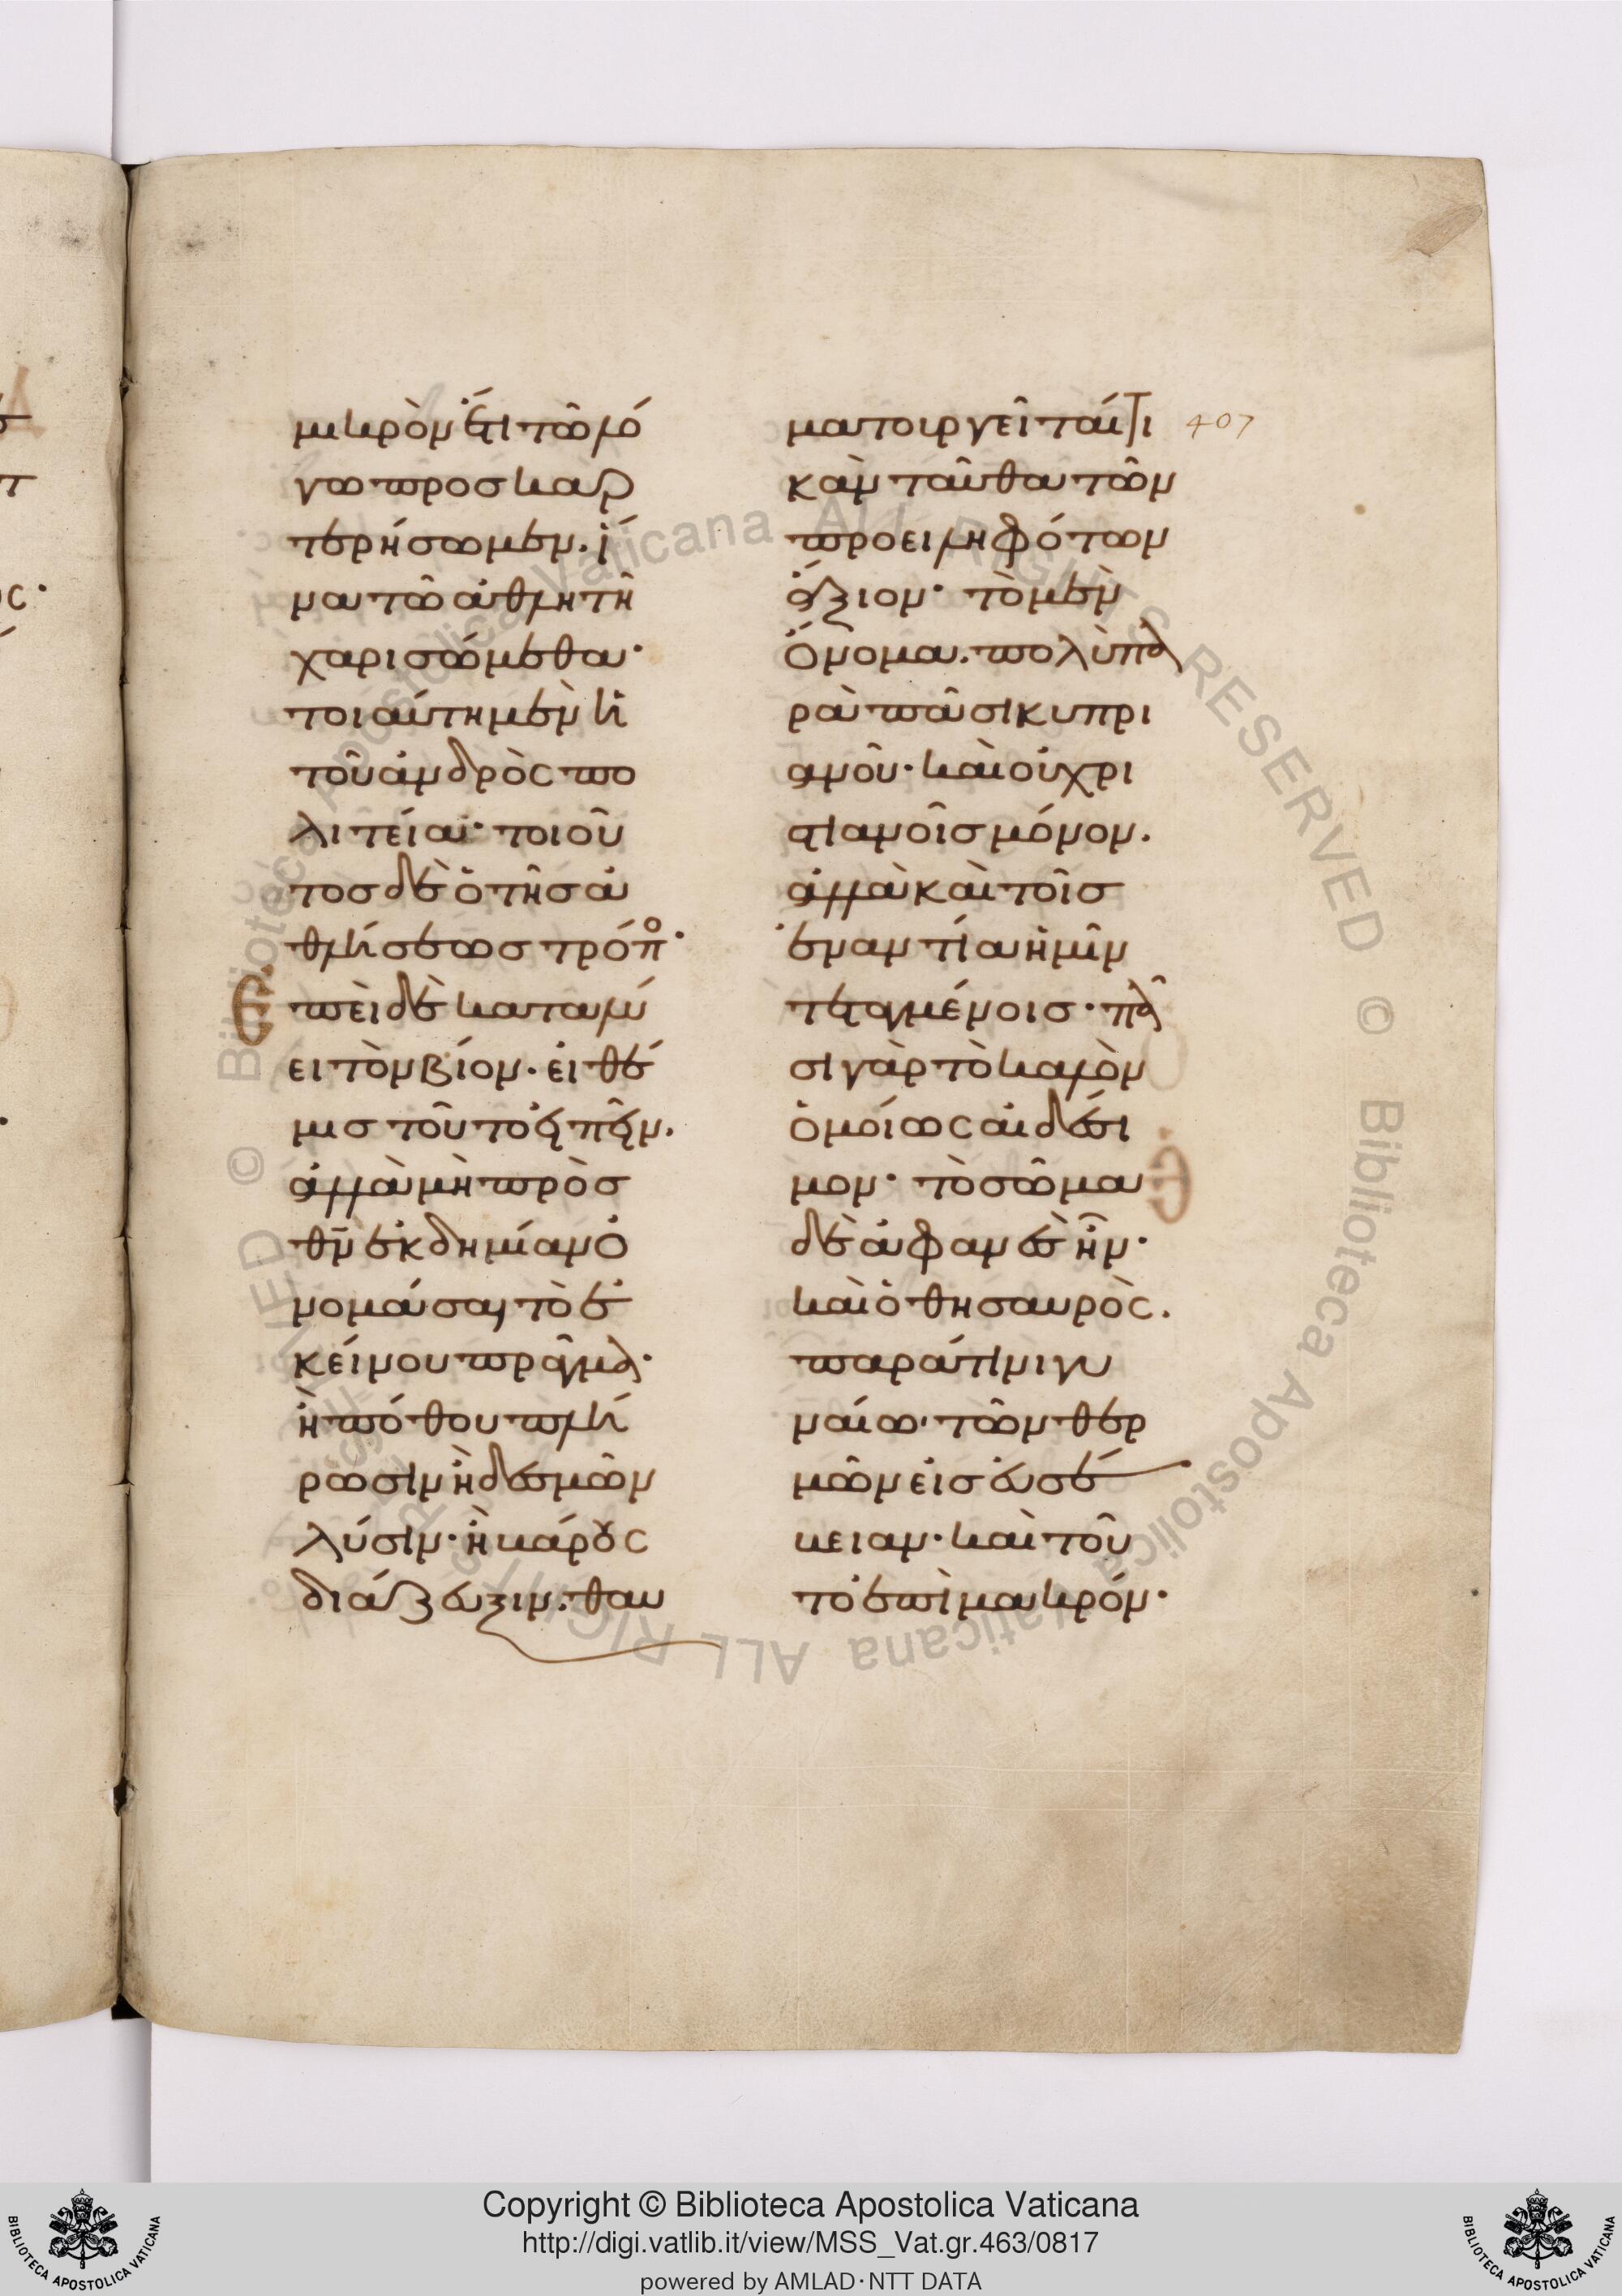 μικρὸν ἔτι τῶ λό
γω προσκαρ
τερήσωμεν. ἵ
να τῶ ἀθλητῆ
χαρισώμεθα·
τοιαύτη μὲν ἡ
τοῦ ἀνδρὸς πο
λιτεία· τοιοῦ
τοσ δὲ ὁ τῆσ ἀ
θλήσεωσ τρόπο·
Ἐπεὶ δὲ καταλύ
ει τὸν βίον· εἰ θέ
μισ τοῦτο εἰπεῖν.
ἀλλὰ μὴ πρὸσ
θν̅ ἐκδημίαν ὀ
νομάσαι τὸ ἐ
κείνου πρᾶγμα·
ἢ πόθου πλή
ρωσιν ἢ δεσμῶν
λύσιν· ἢ βάρους
διάζευξιν. θαυ
ματουργεῖταί τι 407
κἀνταῦθα τῶν
προειληφότων
ἄξιον· τὸ μὲν
ὄνομα. πολὺ πα
ρὰ πᾶσι κυπρι
ανοῦ· καὶ οὐ χρι
στιανοῖσ μόνον.
ἀλλὰ καὶ τοῖσ
ἐναντία ἡμῖν
τεταγμένοισ· πᾶ
σι γὰρ τὸ καλὸν
ὁμοίως αἰδέσι
μον· τὸ σῶμα
δὲ ἀφανὲς ἦν·
καὶ ὁ θησαυρὸς.
παρά τινι γυ
ναίω· τῶν θερ
μῶν εἰσ εὐσέ
βειαν· καὶ τοῦ
το ἐπὶ μακρόν·
Copyright © Biblioteca Apostolica Vaticana
http://digi.vatlib.it/view/MSS_Vat.gr.463/0817
powered by AMLAD·NTT DATA